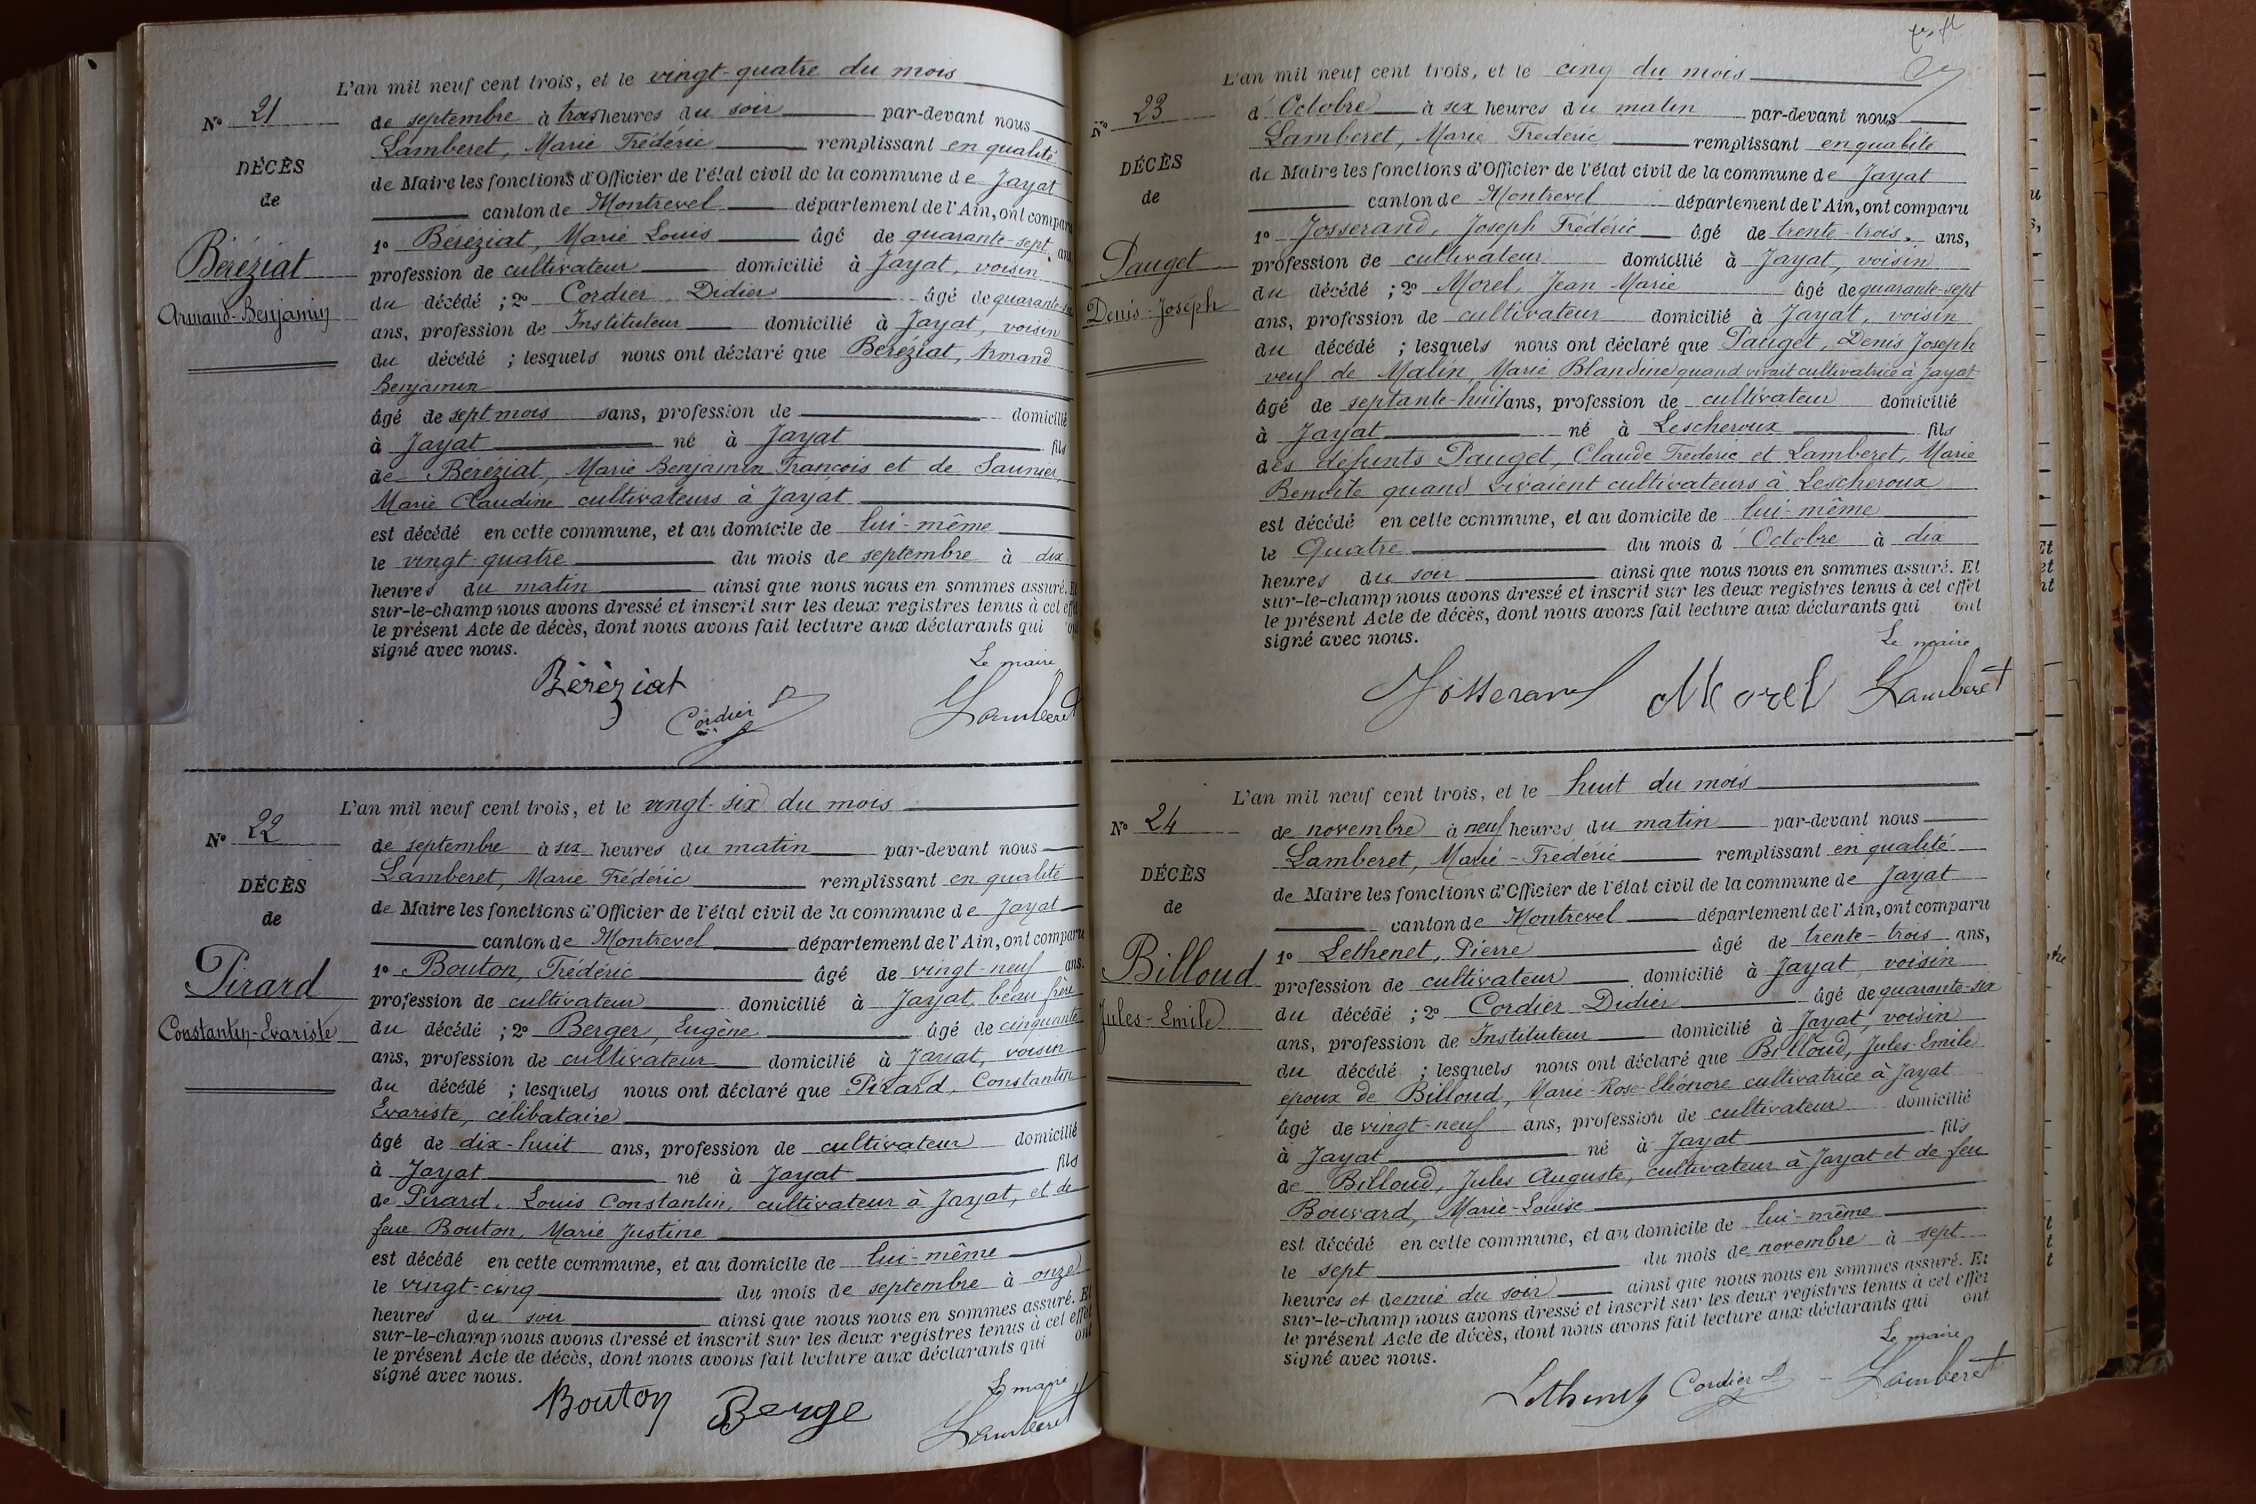 L'an mil neuf cent trois, et le vingt-quatre du mois
No 21
de septembre à trois heures du soir par-devant nous
Lamberet, Marie Frédéric remplissant en qualité
DÉCÈS
de Maire les fonctions d'Officier de l'état civil de la commune de Jayat
de
canton de Montrevel département de l'Ain, ont comparu
1o Béréziat, Marie Louis âgé de quarante-sept ans
Béréziat
profession de cultivateur domicilié à Jayat, voisin
Armand-Benjamin
du décédé ; 2o Cordier Didier âgé de quarante-six
ans, profession de Instituteur domicilié à Jayat, voisin
du décédé ; lesquels nous ont déclaré que Béréziat, Armand
Benjamin
âgé de sept mois sans, profession de domicilié
à Jayat né à Jayat fils
de Béréziat, Marie Benjamin François et de Saunier,
Marie Claudine cultivateurs à Jayat
est décédé en cette commune, et au domicile de lui-même
le vingt-quatre du mois de septembre à dix
heures du matin ainsi que nous nous en sommes assuré. Et
sur-le-champ nous avons dressé et inscrit sur les deux registres tenus à cet effet
le présent Acte de décès, dont nous avons fait lecture aux déclarants qui ont
signé avec nous.
Le maire
Béréziat
Cordier D
Lamberet
L'an mil neuf cent trois, et le vingt-six du mois
No 22
de septembre à six heures du matin par-devant nous
Lamberet, Marie Frédéric remplissant en qualité
DÉCÈS
de Maire les fonctions d'Officier de l'état civil de la commune de Jayat
de
canton de Montrevel département de l'Ain, ont comparu
1o Bouton, Frédéric âgé de vingt-neuf ans.
Pirard
profession de cultivateur domicilié à Jayat, beau frère
Constantin-Evariste
du décédé ; 2o Berger, Eugène âgé de cinquante
ans, profession de cultivateur domicilié à Jayat, voisin
du décédé ; lesquels nous ont déclaré que Pirard, Constantin
Evariste, célibataire
âgé de dix-huit ans, profession de cultivateur domicilié
à Jayat né à Jayat fils
de Pirard, Louis Constantin, cultivateur à Jayat, et de
feue Bouton, Marie Justine
est décédé en cette commune, et au domicile de lui-même
le vingt-cinq du mois de septembre à onze
heures du soir ainsi que nous nous en sommes assuré. Et
sur-le-champ nous avons dressé et inscrit sur les deux registres tenus à cet effet
le présent Acte de décès, dont nous avons fait lecture aux déclarants qui ont
signé avec nous.
Le maire
Bouton Berge Lamberet
L'an mil neuf cent trois, et le cinq du mois
No 23
d'Octobre à six heures du matin par-devant nous
Lamberet, Marie Frédéric remplissant en qualité
DÉCÈS
de Maire les fonctions d'Officier de l'état civil de la commune de Jayat
de
canton de Montrevel département de l'Ain, ont comparu
1o Josserand, Joseph Frédéric âgé de trente-trois ans,
Pauget
profession de cultivateur domicilié à Jayat, voisin
Denis-Joseph
du décédé ; 2o Morel, Jean Marie âgé de quarante-sept
ans, profession de cultivateur domicilié à Jayat, voisin
du décédé ; lesquels nous ont déclaré que Pauget, Denis Joseph
veuf de Malin, Marie Blandine quand vivait cultivatrice à Jayat
âgé de septante-huit ans, profession de cultivateur domicilié
à Jayat né à Lescheroux fils
des défunts Pauget, Claude Frédéric et Lamberet, Marie
Benoite quand vivaient cultivateurs à Lescheroux
est décédé en cette commune, et au domicile de lui-même
le Quatre du mois d'Octobre à dix
heures du soir ainsi que nous nous en sommes assuré. Et
sur-le-champ nous avons dressé et inscrit sur les deux registres tenus à cet effet
le présent Acte de décès, dont nous avons fait lecture aux déclarants qui ont
signé avec nous.
Le maire
Josserand Morel Lamberet
L'an mil neuf cent trois, et le huit du mois
No 24
de novembre à neuf heures du matin par-devant nous
Lamberet, Marie-Frédéric remplissant en qualité
DÉCÈS
de Maire les fonctions d'Officier de l'état civil de la commune de Jayat
de
canton de Montrevel département de l'Ain, ont comparu
1o Lethenet, Pierre âgé de trente-trois ans,
Billoud
profession de cultivateur domicilié à Jayat voisin
Jules-Emile
du décédé ; 2o Cordier Didier âgé de quarante-six
ans, profession de Instituteur domicilié à Jayat, voisin
du décédé ; lesquels nous ont déclaré que Billoud, Jules-Emile
époux de Billoud, Marie-Rose-Eléonore cultivatrice à Jayat
âgé de vingt-neuf ans, profession de cultivateur domicilié
à Jayat né à Jayat fils
de Billoud, Jules Auguste, cultivateur à Jayat et de feu
Bouvard, Marie-Louise
est décédé en cette commune, et au domicile de lui-même
le sept du mois de novembre à sept
heures et demie du soir ainsi que nous nous en sommes assuré. Et
sur-le-champ nous avons dressé et inscrit sur les deux registres tenus à cet effet
le présent Acte de décès, dont nous avons fait lecture aux déclarants qui ont
signé avec nous.
Le maire
Lethenet Cordier D Lamberet